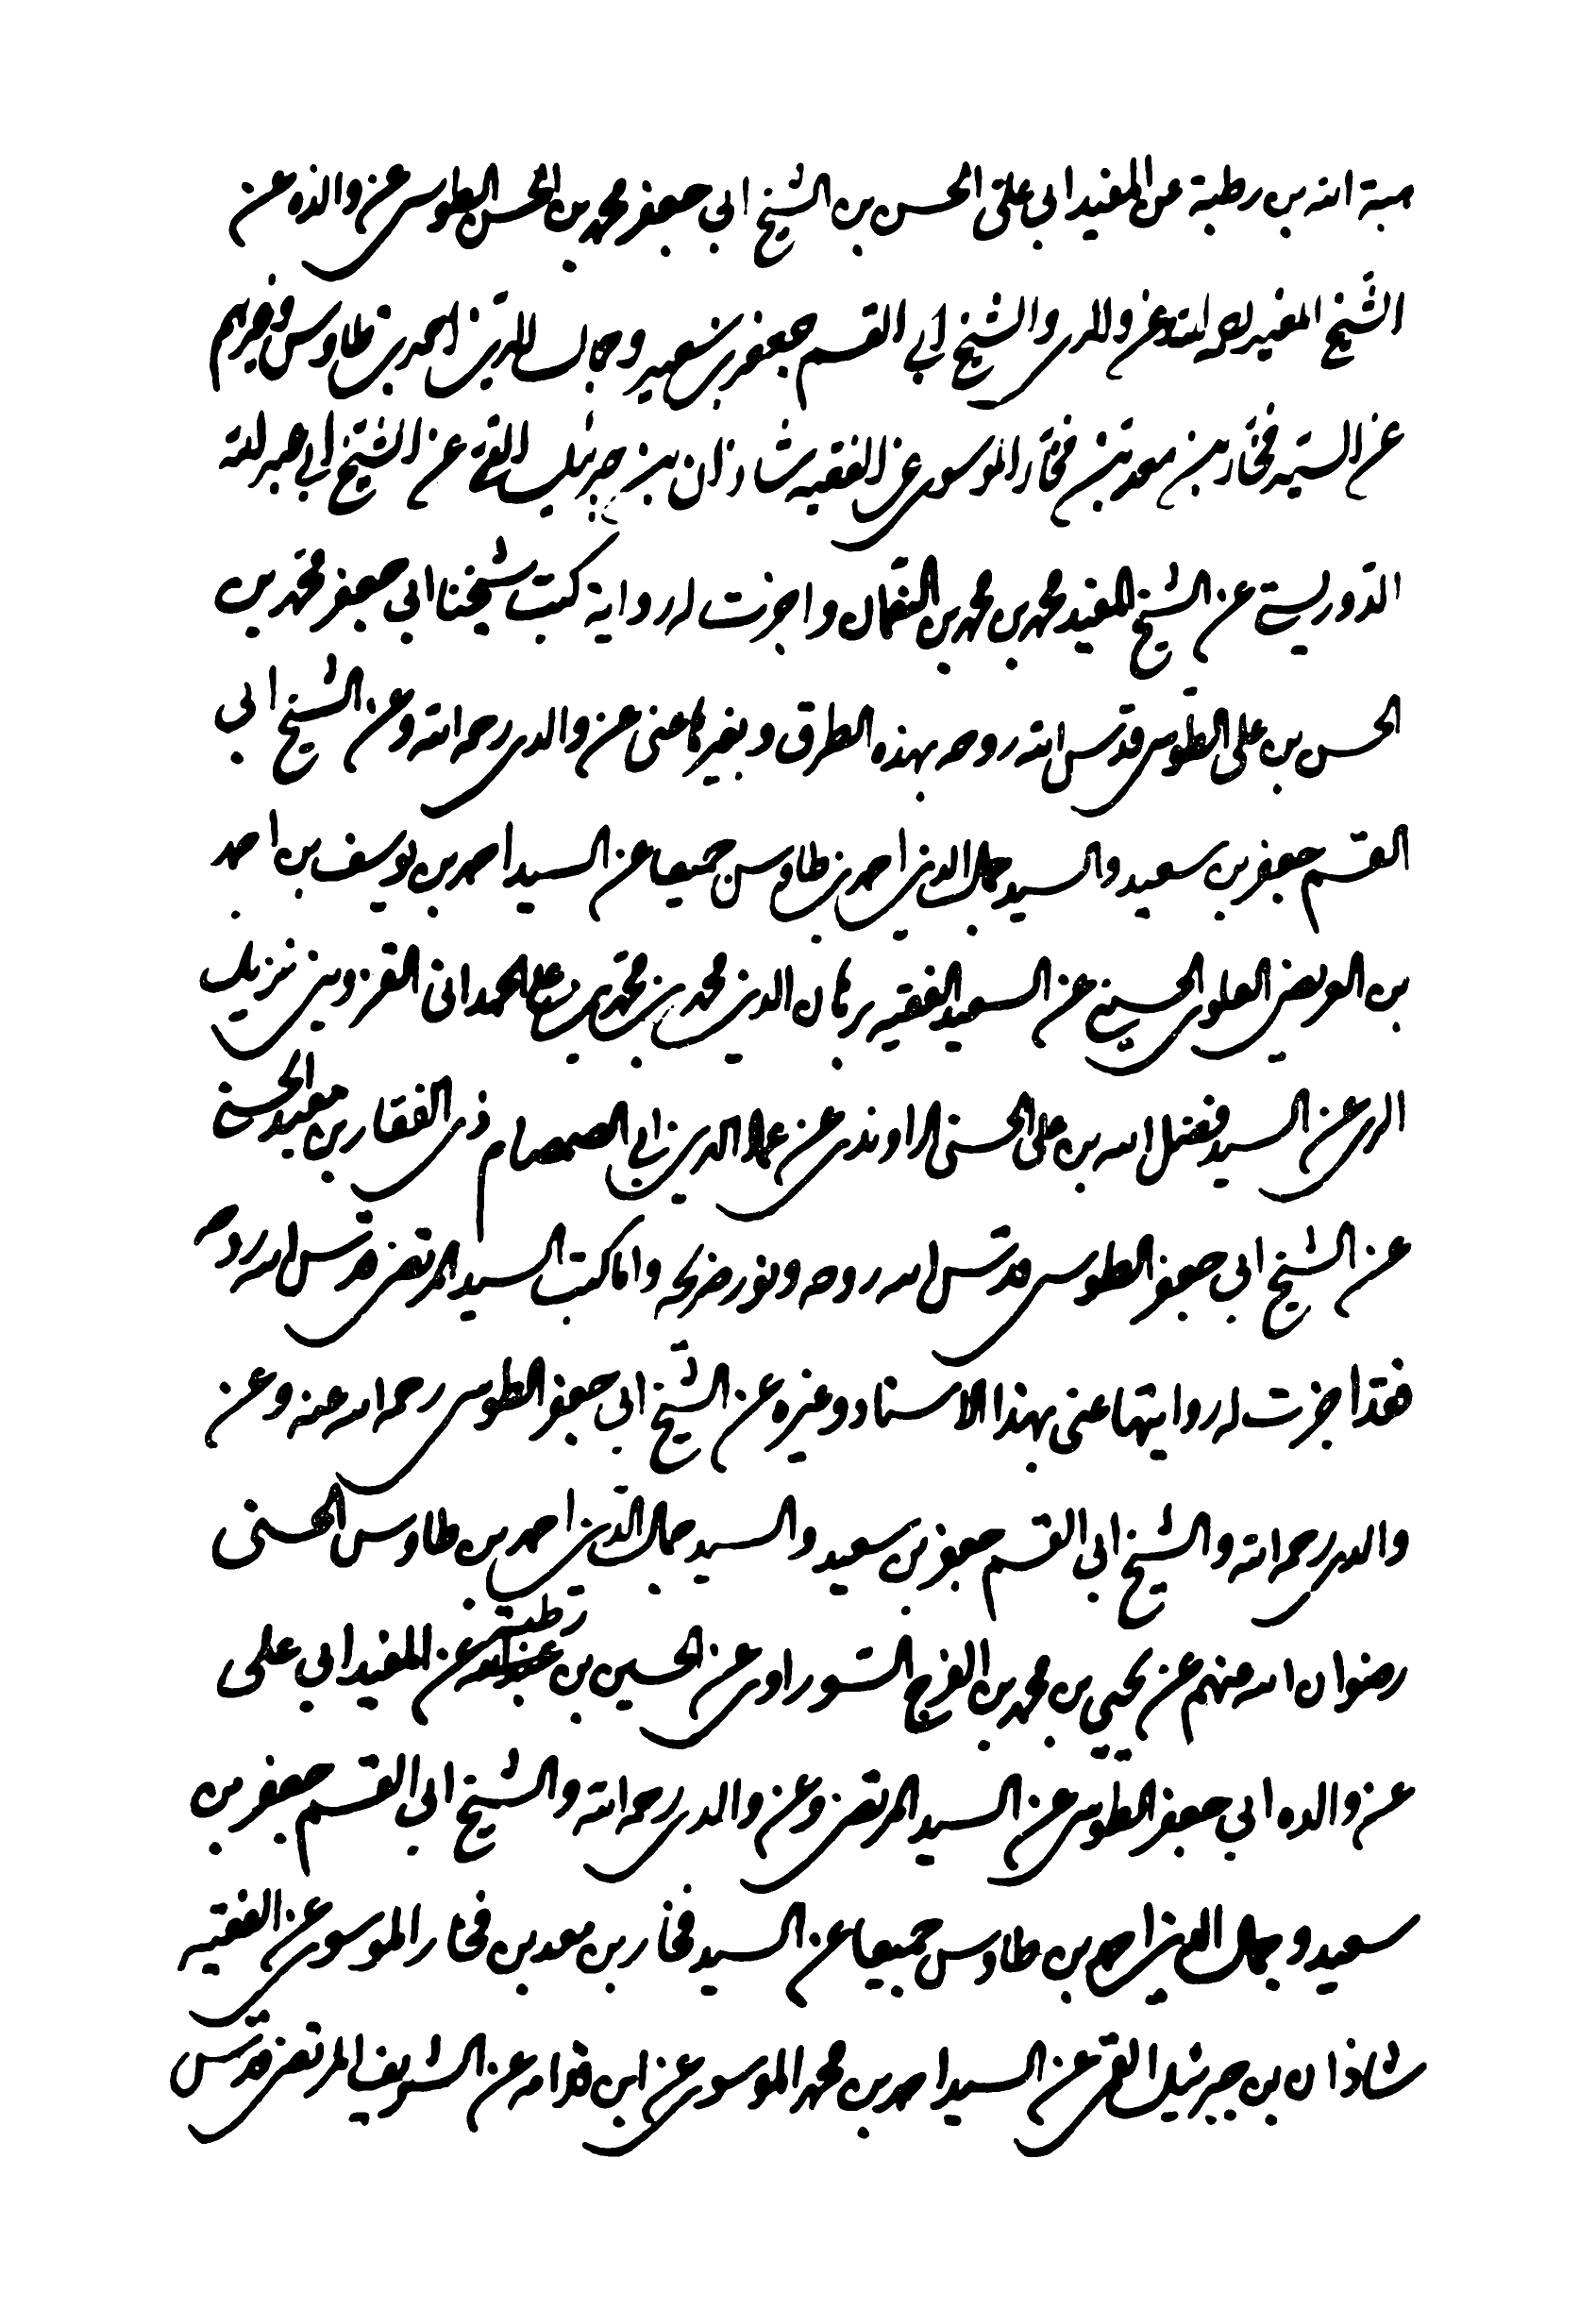 هبة الله بن رطبة عن المفيد ابي علي الحسن بن الشيخ ابي جعفر محمد بن الحسن الطوسي عن والده عن
الشيخ المفيد وعن والدي والشيخ ابي القسم جعفر بن سعيد وجمال الدين احمد بن طاوس وغيرهم
عن السيد فخار بن معد بن فخار الموسوي عن الفقيه شاذان بن جبرئيل القمي عن الشيخ ابي عبد الله
الدوريستي عن الشيخ المفيد محمد بن محمد بن النعمان واجزت له رواية كتب شيخنا ابي جعفر محمد بن
الحسن بن علي الطوسي قدس الله روحه بهذه الطرق وبغيرها عني عن والدي رحمه الله وعن الشيخ ابي
القسم جعفر بن سعيد والسيد جمال الدين احمد بن طاوس جميعا عن السيد احمد بن يوسف بن احمد
بن العريضي العلوي الحسيني عن السعيد الفقيه برهان الدين محمد بن محمد بن علي الحمداني القزويني نزيل
الري عن السيد فضل الله بن علي الحسني الراوندي عن عماد الدين ابي الصمصام ذي الفقار بن معبد الحسني
عن الشيخ ابي جعفر الطوسي قدس الله روحه ونور ضريحه واما كتب السيد المرتضى قدس الله روحه
فقد اجزت له روايتها عني بهذا الاسناد وغيره عن الشيخ ابي جعفر الطوسي رحمه الله عنه وعن
والدي رحمه الله والشيخ ابي القسم جعفر بن سعيد والسيد جمال الدين احمد بن طاوس الحسني
رضوان الله منهم عن يحيى بن محمد بن الفرج السوراوي عن الحسين بن رطبة عن المفيد ابي علي
عن والده ابي جعفر الطوسي عن السيد المرتضى وعن والدي رحمه الله والشيخ ابي القسم جعفر بن
سعيد وجمال الدين احمد بن طاوس جميعا عن السيد فخار بن معد بن فخار الموسوي عن الفقيه
شاذان بن جبرئيل القمي عن السيد احمد بن محمد الموسوي عن ابن قدامه عن الشريف المرتضى قدس